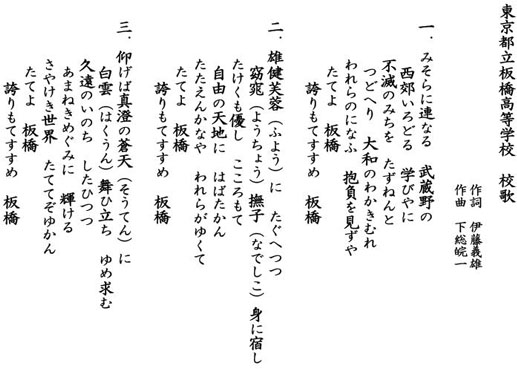 東京都立板橋高等学校　校歌
作詞　伊藤義雄
作曲　下総皖一
一．みそらに連なる　武蔵野の
西郊いろどる　学びやに
不滅のみちを　たずねんと
つどへり　大和のわかきむれ
われらのになふ　抱負を見ずや
たてよ　板橋
誇りもてすすめ　板橋
二．雄健芙蓉（ふよう）に　たぐへつつ
窈窕（ようちょう）撫子（なでしこ）身に宿し
たけくも優し　こころもて
自由の天地に　はばたかん
たたえんかなや　われらがゆくて
たてよ　板橋
誇りもてすすめ　板橋
三．仰げば真澄の蒼天（そうてん）に
白雲（はくうん）舞ひ立ち　ゆめ求む
久遠のいのち　したひつつ
あまねきめぐみに　輝ける
さやけき世界　たててぞゆかん
たてよ　板橋
誇りもてすすめ　板橋